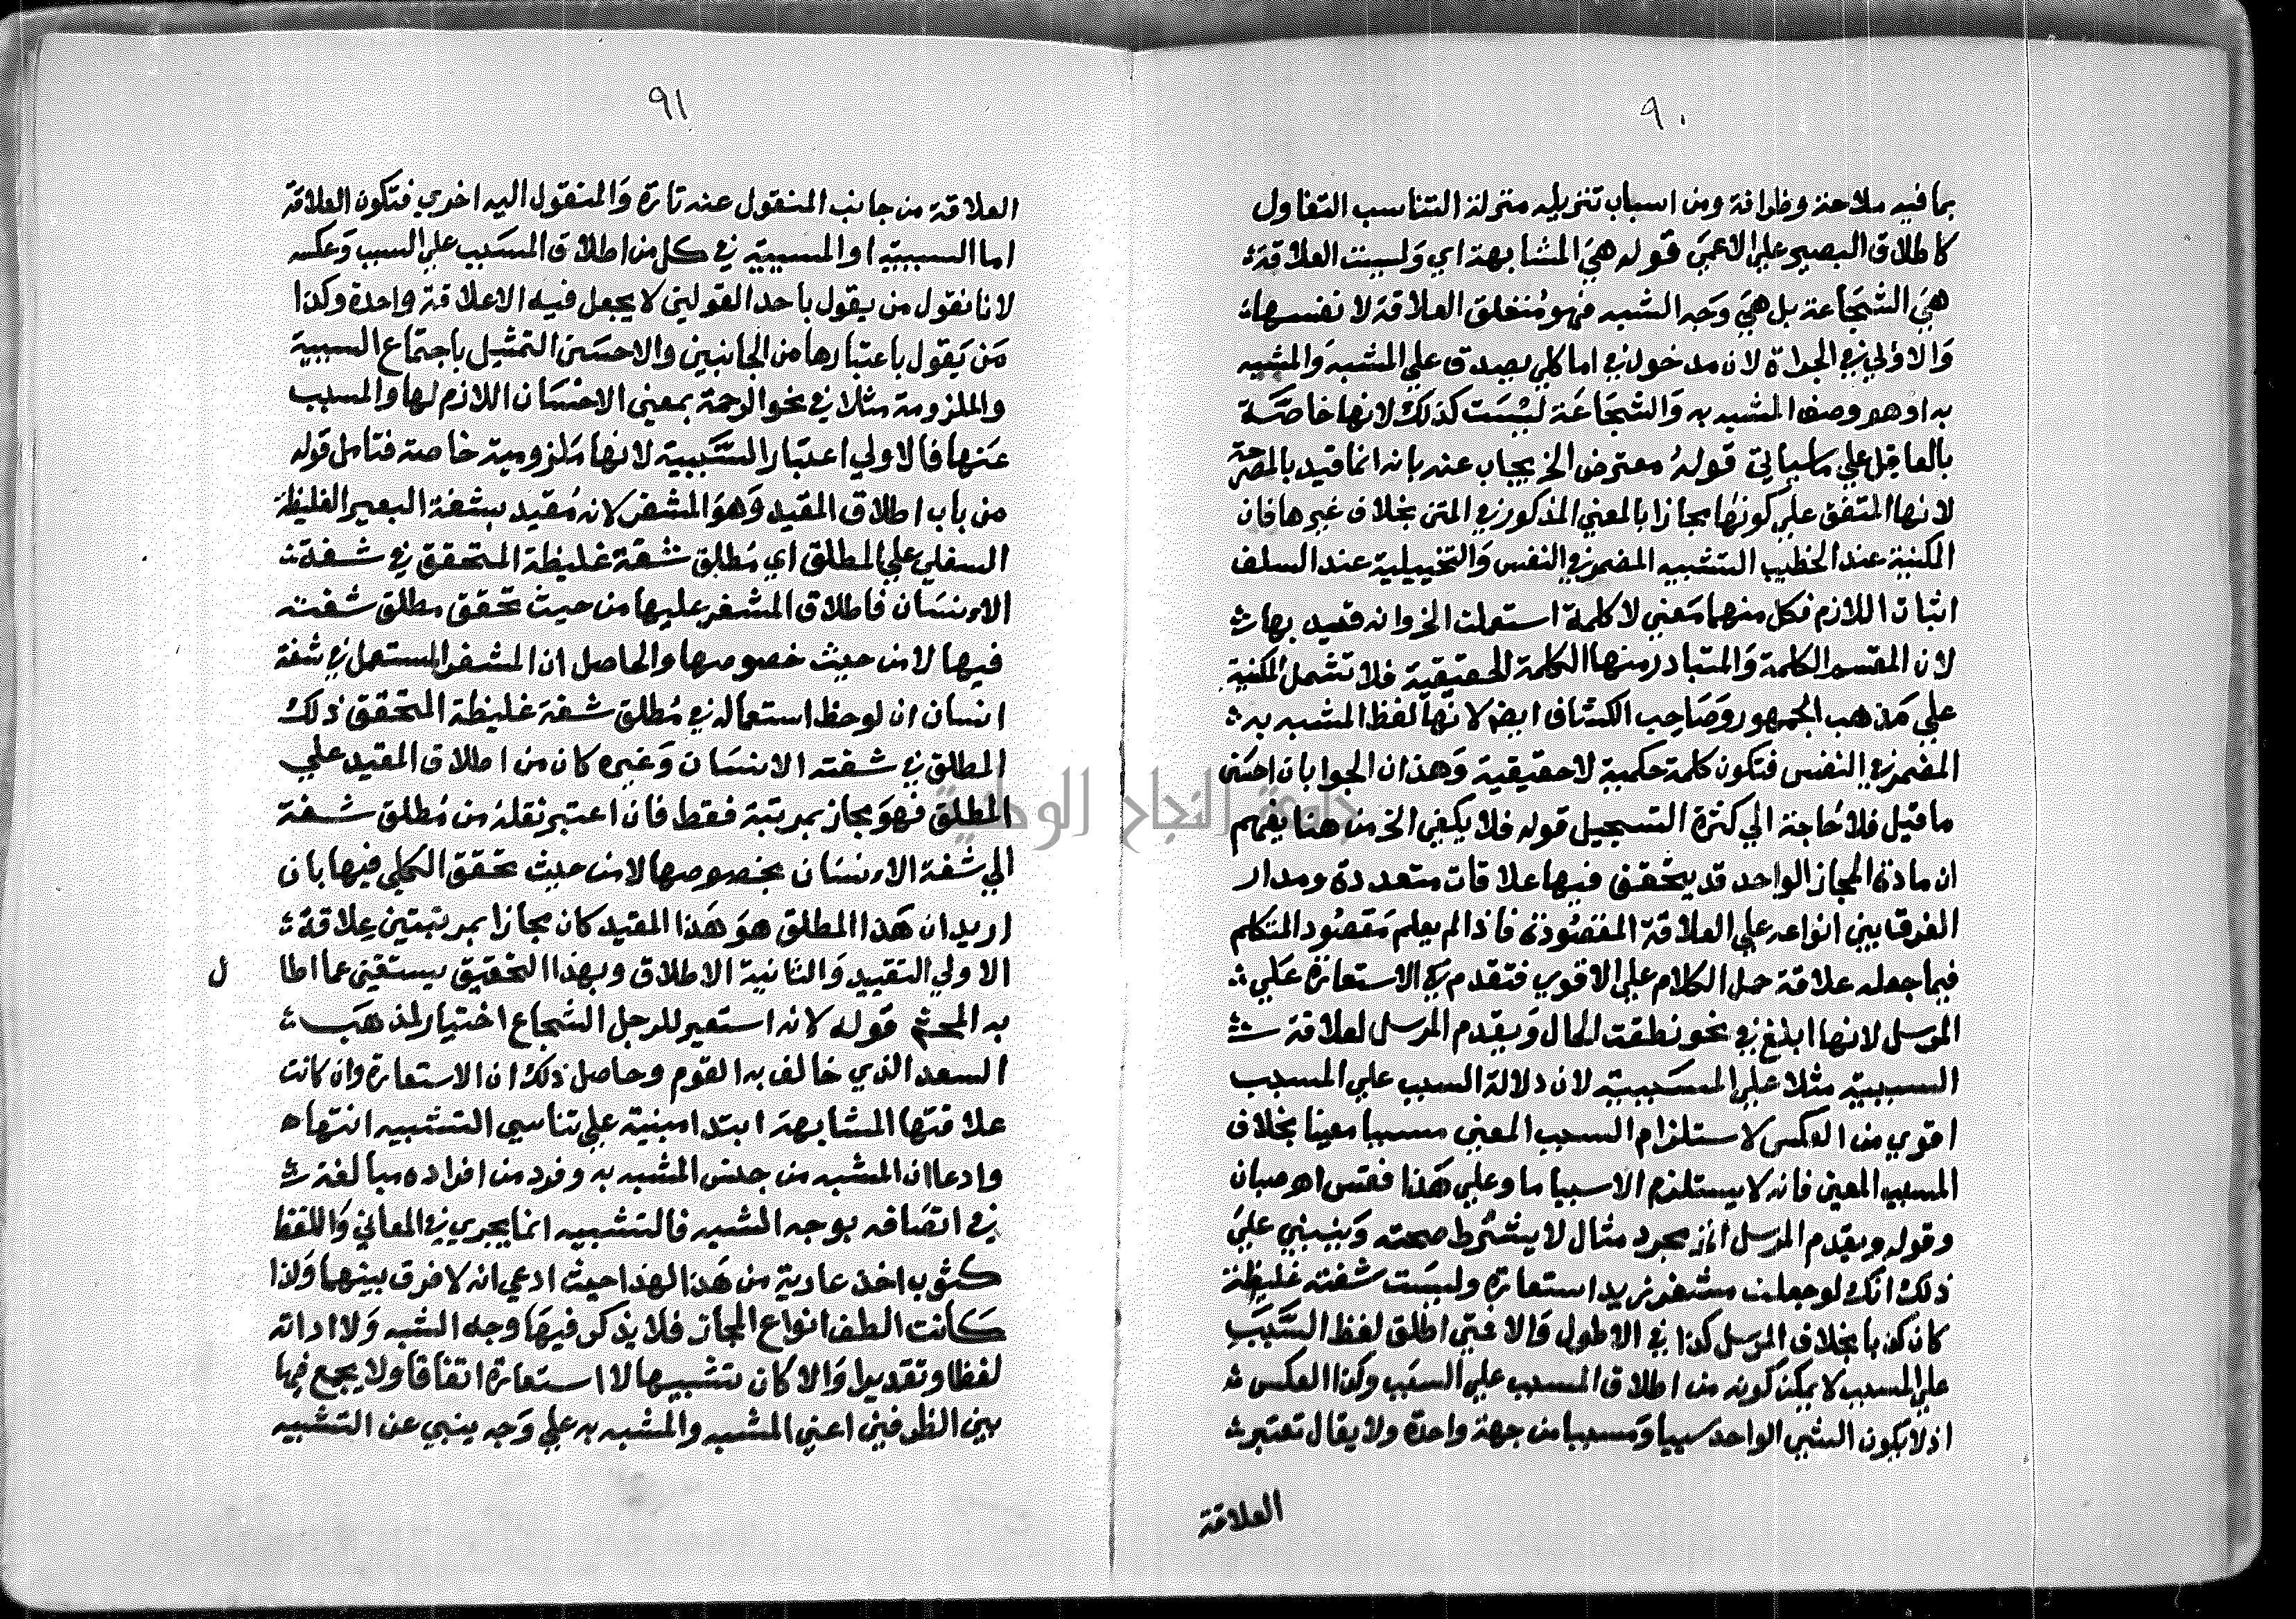 ٩٠
بما فيه ملاحة وظرافة ومن اسباب تنزيله منزلة التناسب التفاول
كاطلاق البصير علي الاعمي قوله هي المشابهة اي وليست العلاقة
هي الشجاعة بل هي وجه الشبه فهو متعلق العلاقة لا نفسها
والاولي في الجراة لان مدخول في اما كلي يصدق علي المشبه والمشبه
به او هو وصف المشبه به والشجاعة ليست كذلك لانها خاصة
بالعاقل علي ما سياتي قوله معترض الخ يجاب عنه بانه انما قيد بالمصرحة
لانها المتفق علي كونها مجازا بالمعني المذكور في المتن بخلاف غيرها فان
المكنية عند الخطيب التشبيه المضمر في النفس والتخييلية عند السلف
اثبات اللازم فكل منهما معني لا كلمة استعملت الخ وانه قيد بها
لان المقسم الكلمة والمتبادر منها الكلمة الحقيقية فلا تشمل المكنية
علي مذهب الجمهور وصاحب الكشاف ايضا لانها لفظ المشبه به
المضمر في النفس فتكون كلمة حكمية لا حقيقية وهذان الجوابان احسن
ما قيل فلا حاجة الي كثرة التسجيل قوله فلا يكفي الخ من هنا يفهم
ان مادة المجاز الواحد قد يتحقق فيها علاقات متعددة ومدار
الفرق بين انواعه علي العلاقة المقصودة فاذا لم يعلم مقصود المتكلم
فيما جعله علاقة حمل الكلام علي الاقوي فتقدم في الاستعارة علي
المرسل لانها ابلغ في نحو نطقت الحال ويقدم المرسل لعلاقة
السببية مثلا علي المسببية لان دلالة السبب علي المسبب
اقوي من العكس لاستلزام السبب المعين مسببا معينا بخلاف
المسبب المعين فانه لا يستلزم الا سببا ما وعلي هذا فقس اهـ صبان
وقوله ويقدم المرسل الخ مجرد مثال لا يشترط صحته وينبني علي
ذلك انك لو جعلت مشفر زيد استعارة وليست شفته غليظة
كان كذبا بخلاف المرسل كذا في الاطول والا عتى اطلق لفظ السبب
علي المسبب لا يمكن كونه من اطلاق المسبب علي السبب وكذا العكس
اذ لا يكون الشي الواحد سببا ومسببا من جهة واحدة ولا يقال تعتبر
العلاقة
٩١
العلاقة من جانب المنقول عنه تارة والمنقول اليه اخري فتكون العلاقة
اما السببية او المسببية في كل من اطلاق المسبب علي السبب وعكسه
لانا نقول من يقول باحد القولين لا يجعل فيه الا علاقة واحدة وكذا
من يقول باعتبارها من الجانبين والاحسن التمثيل باجتماع السببية
والملزومية مثلا في نحو الرحمة بمعني الاحسان اللازم لها والمسبب
عنها فالاولي اعتبار السببية لانها ملزومية خاصة فتامل قوله
من باب اطلاق المقيد وهو المشفر لانه مقيد بشفة البعير الغليظة
السفلي علي المطلق اي مطلق شفة غليظة المتحقق في شفة
الانسان فاطلاق المشفر عليها من حيث تحقق مطلق شفته
فيها لا من حيث خصوصها والحاصل ان المشفر المستعمل في شفة
انسان ان لوحظ استعماله في مطلق شفة غليظة المتحقق ذلك
المطلق في شفته الانسان وغيره كان من اطلاق المقيد علي
المطلق فهو مجاز بمرتبة فقط فان اعتبر نقله من مطلق شفة
الي شفة الانسان بخصوصها لا من حيث تحقق الكلي فيها بان
اريد ان هذا المطلق هو هذا المقيد كان مجازا بمرتبتين علاقة
الاولي التقييد والثانية الاطلاق وبهذا التحقيق يستغني عما اطا
ل
به المحشي قوله لانه استعير للرجل الشجاع اختيار لمذهب
السعد الذي خالف به القوم وحاصل ذلك ان الاستعارة وان كانت
علاقتها المشابهة ابتدا مبنية علي تناسي التشبيه انتهاء
وادعا ان المشبه من جنس المشبه به وفرد من افراده مبالغة
في اتصافه بوجه الشبه فالتشبيه انما يجري في المعاني واللفظ
كثوب اخذ عارية من هذا لهذا حيث ادعي انه لا فرق بينهما ولذا
كانت الطف انواع المجاز فلا يذكر فيها وجه الشبه ولا اداته
لفظا وتقديرا والا كان تشبيها لا استعارة اتفاقا ولا يجمع فيها
بين الطرفين اعني المشبه والمشبه به علي وجه ينبي عن التشبيه
جامعة النجاح الوطنية